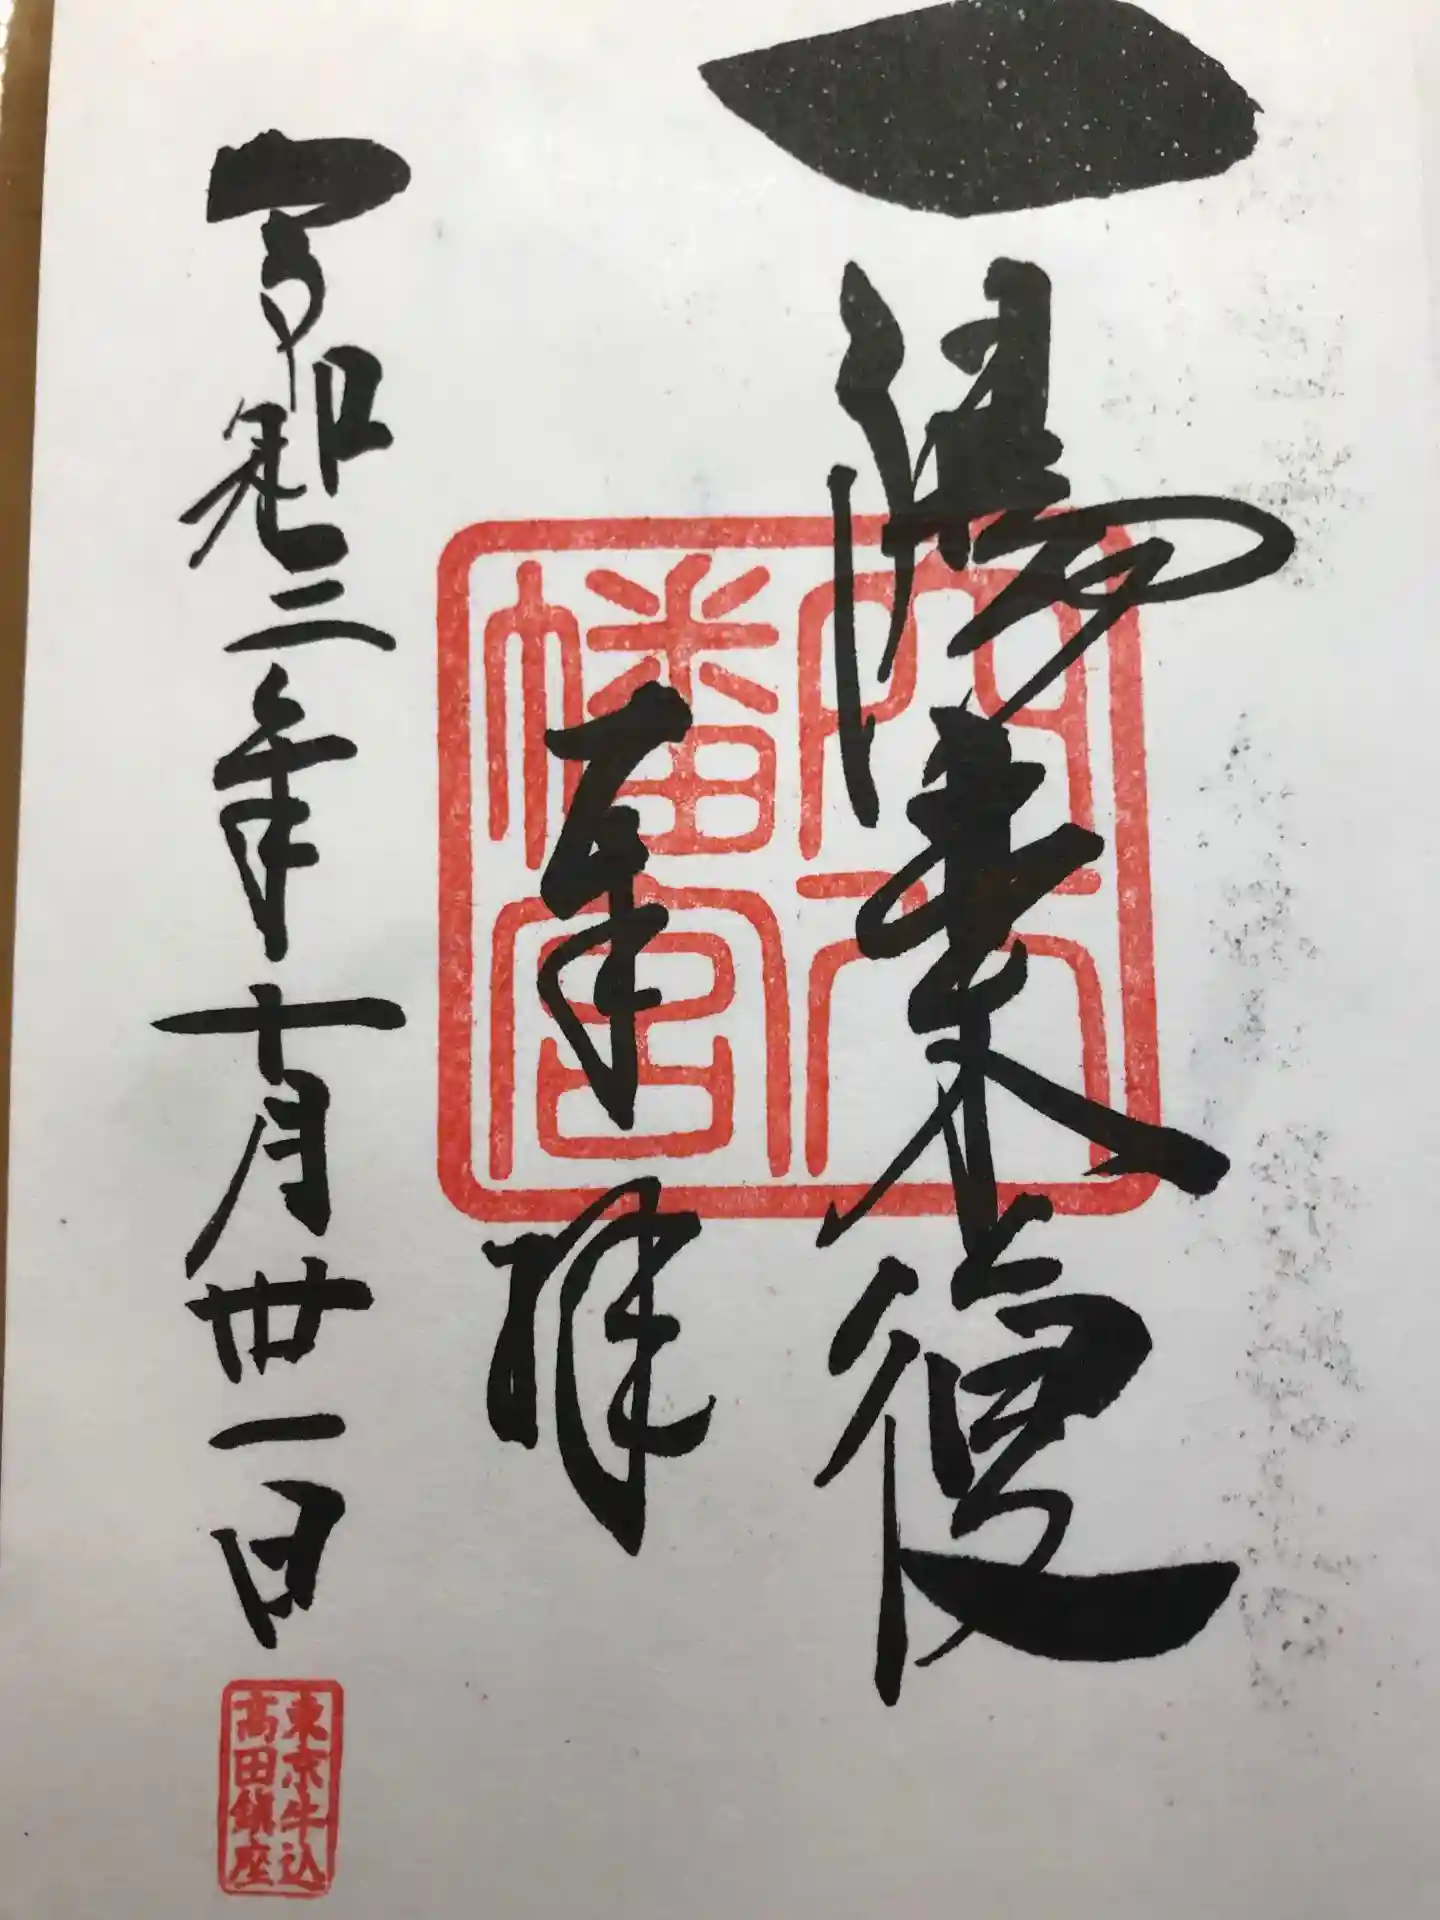 一陽来復
奉拝
令和三年十月丗一日
穴八
幡宮
東京牛込
高田鎮座